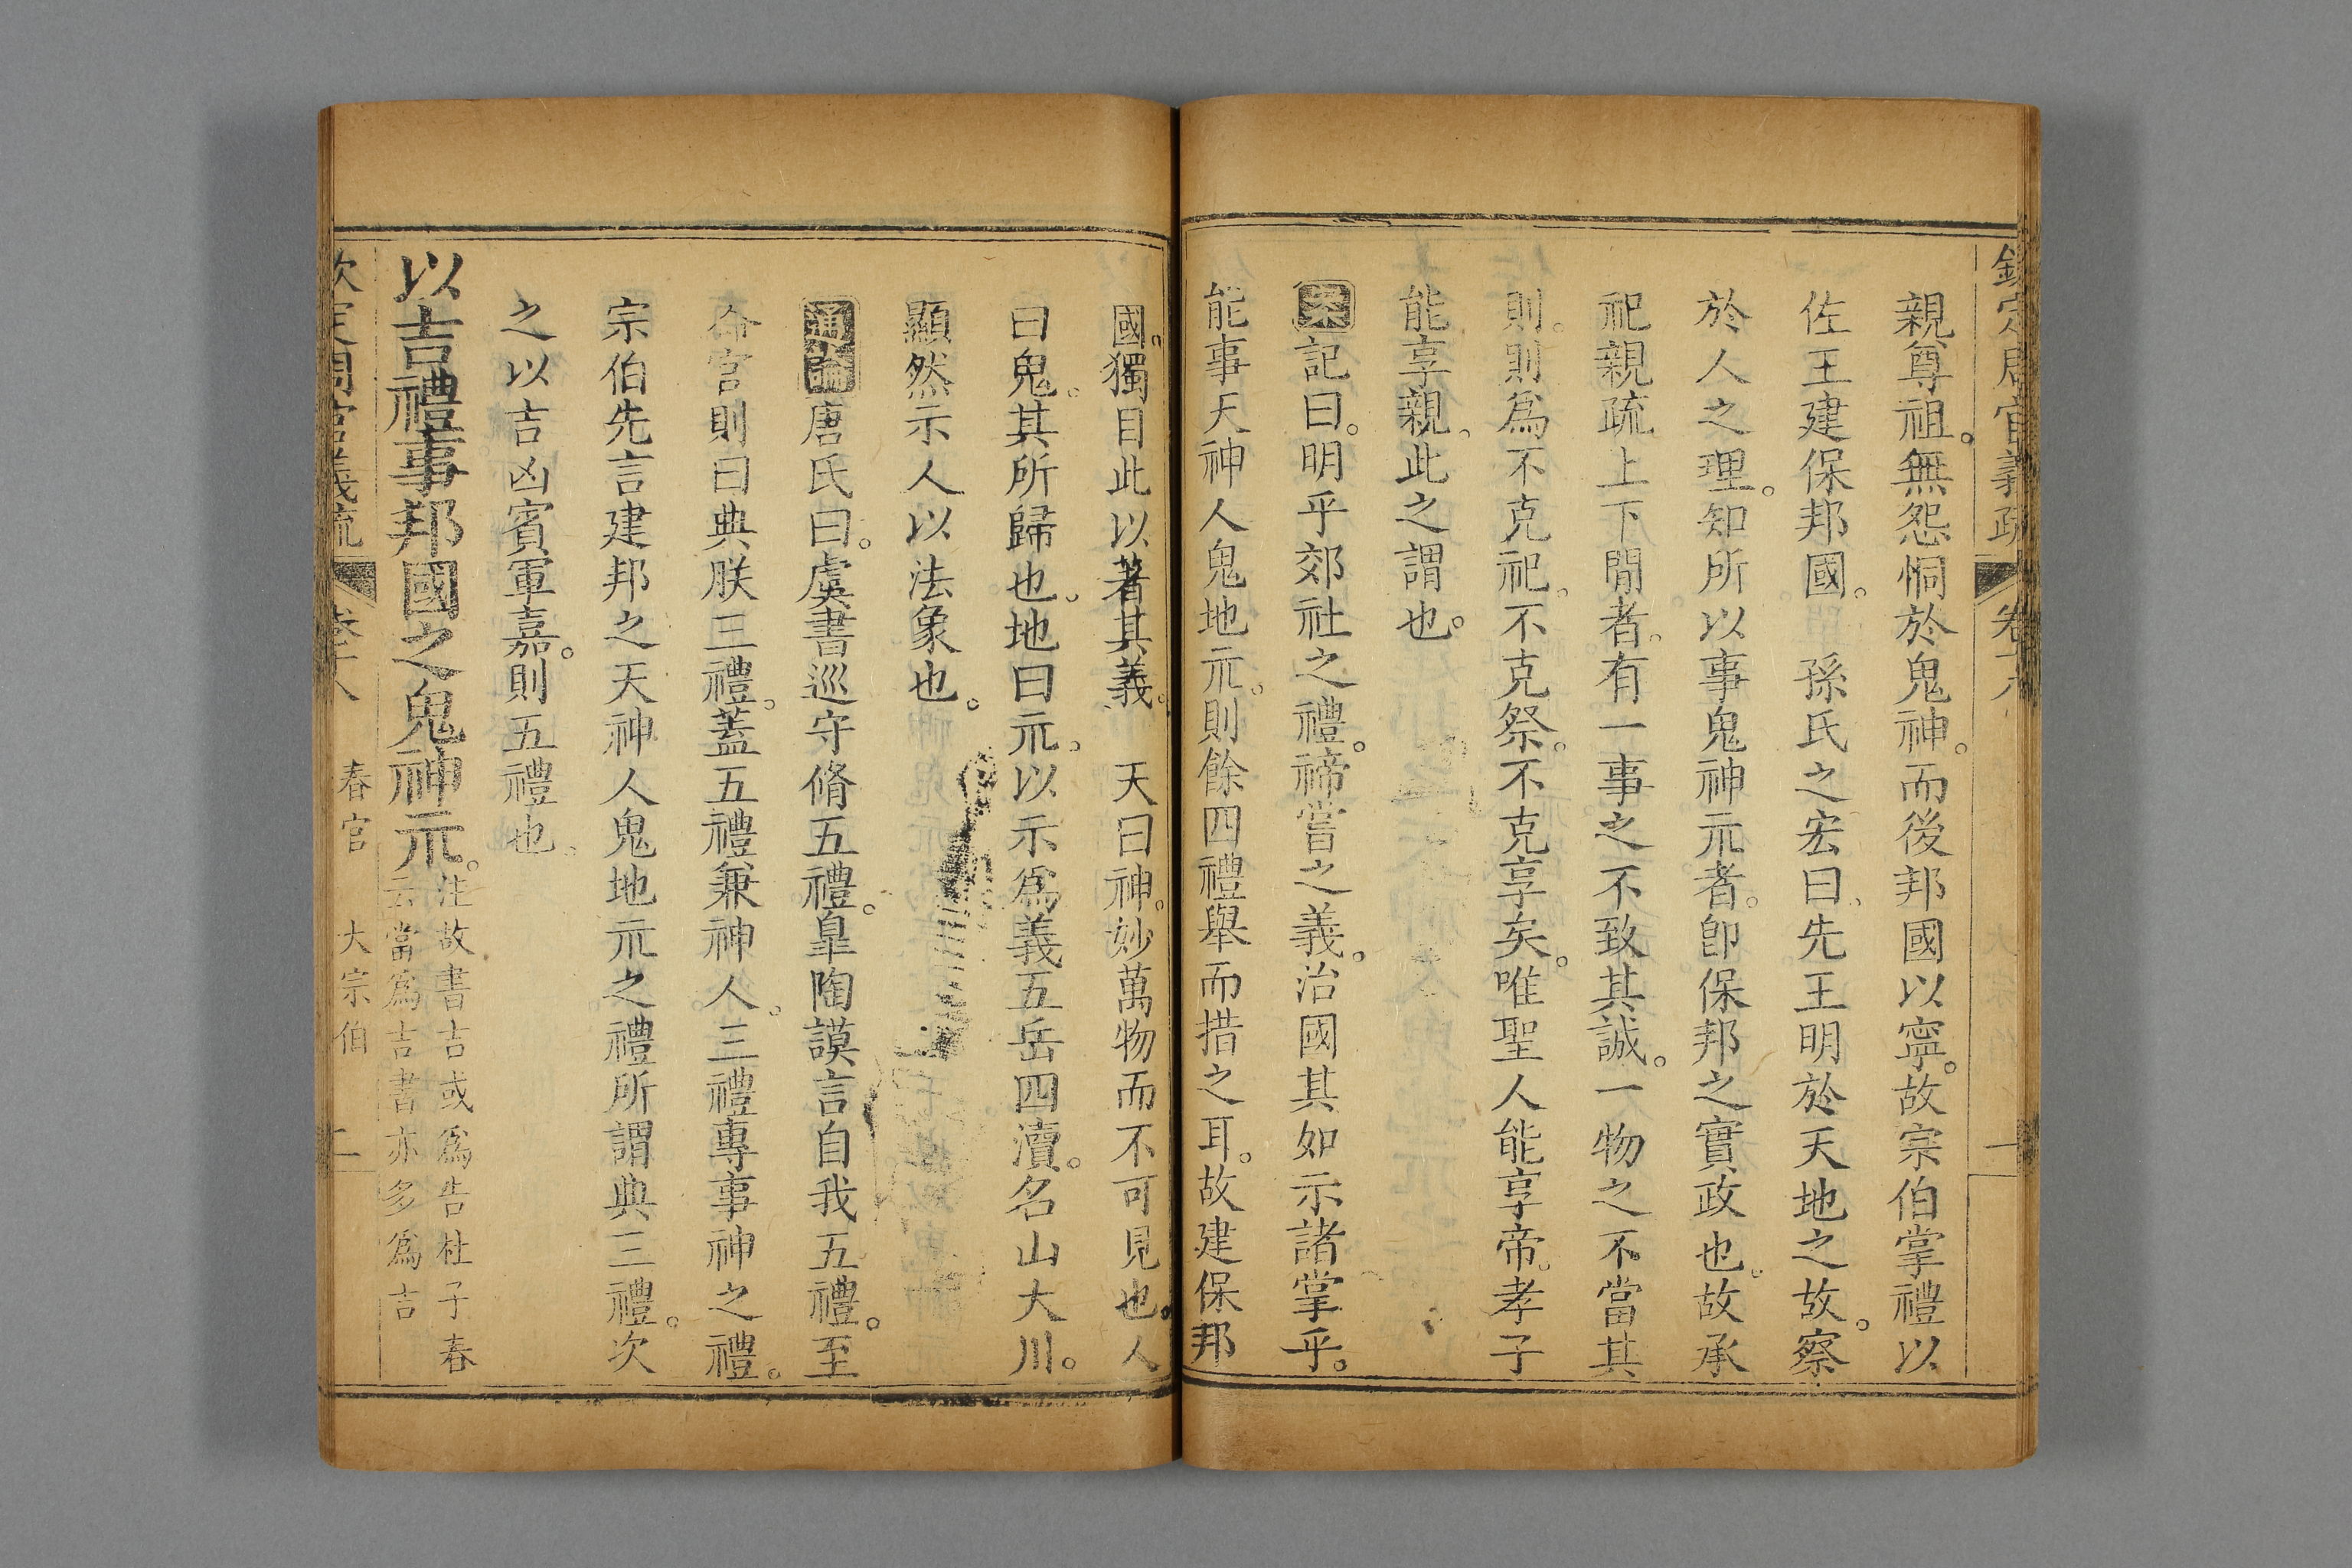 欽定周官義疏 卷十八 一
親尊祖。無怨恫於鬼神。而後邦國以寧。故宗伯掌禮以
佐王建保邦國。 孫氏之宏曰、先王明於天地之故。察
於人之理。知所以事鬼神示者。卽保邦之實政也。故承
祀親疏上下閒者。有一事之不致其誠。一物之不當其
則。則爲不克祀。不克祭。不克享矣。唯聖人能享帝。孝子
能享親。此之謂也。
案記曰。明乎郊社之禮。禘嘗之義。治國其如示諸掌乎。
能事天神人鬼地示。則餘四禮舉而措之耳。故建保邦
國。獨目此以著其義。 天曰神。妙萬物而不可見也。人
曰鬼。其所歸也。地曰示。以示爲義五岳四瀆。名山大川。
顯然示人以法象也。
通論唐氏曰。虞書巡守脩五禮。臯陶謨言自我五禮。至
命官則曰典朕三禮。蓋五禮兼神人。三禮專事神之禮。
宗伯先言建邦之天神人鬼地示之禮所謂典三禮。次
之以吉凶賓軍嘉。則五禮也。
以吉禮事邦國之鬼神示。注故書吉或爲告杜子春
云當爲吉書亦多爲吉
欽定周官義疏 卷十八 春官 大宗伯 二